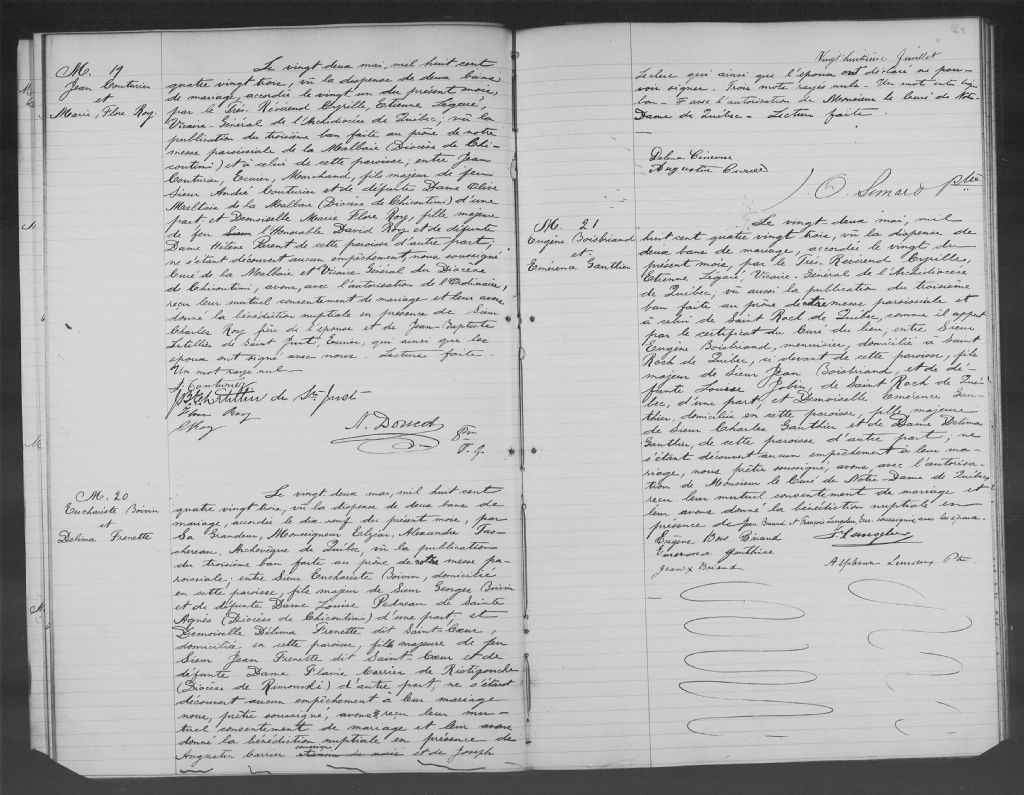 M. 19
Jean Couturier
et
Marie, Flore Roy.
Le vingt deux mai, mil huit cent
quatre vingt trois, vû la dispense de deux bans
de mariage, accordée le vingt un du présent mois,
par le Très-Révérend Cyrille, Etienne Légaré,
Vicaire-Général de l'Archidiocèse de Québec; vû la
publication du troisième ban faite au prône de notre
messe paroissiale de la Malbaie (Diocèse de Chi-
coutimi) et à celui de cette paroisse; entre Jean
Couturier, Ecuier, Marchand, fils majeur de feu
Sieur André Couturier et de défunte Dame Olive
Maltais de la Malbaie (Diocèse de Chicoutimi) d'une
part et Demoiselle Marie Flore Roy, fille majeure
de feu Sieur l'Honorable David Roy et de défunte
Dame Hélène Parent de cette paroisse d'autre part;
ne s'étant découvert aucun empêchement, nous soussigné
Curé de la Malbaie et Vicaire Général du Diocèse
de Chicoutimi, avons, avec l'autorisation de l'Ordinaire,
reçu leur mutuel consentement de mariage et leur avons
donné la bénédiction nuptiale en présence de Sieur
Charles Roy frère de l'épouse et de Jean-Baptiste
Letellier de Saint Just Ecuier, qui ainsi que les
époux ont signé avec nous. Lecture faite.
Un mot rayé nul
J. Couturier
Letellier de St. Just
Flore Roy
C Roy
A. Doucet
Ptre
V. G.
M. 20
Euchariste Boivin
et
Délima Frenette
Le vingt deux mai, mil huit cent
quatre vingt trois, vû la dispense de deux bans de
mariage, accordée le dix neuf du présent mois, par
Sa Grandeur, Monseigneur Elzéar, Alexandre Tas-
chereau, Archevêque de Québec, vû la publication
du troisième ban faite au prône de notre messe pa-
roissiale; entre Sieur Euchariste Boivin, domicilié
en cette paroisse, fils majeur de Sieur Georges Boivin
et de défunte Dame Louise Pedneau de Sainte
Agnès (Diocèse de Chicoutimi) d'une part, et
Demoiselle Délima Frenette dit Saint-Cœur,
domiciliée en cette paroisse, fille majeure de feu
Sieur Jean Frenette dit Saint-Cœur et de
défunte Dame Flavie Carrier de Ristigouche
(Diocèse de Rimouski) d'autre part; ne s'étant
découvert aucun empêchement à leur mariage
nous, prêtre soussigné, avons reçu leur mu-
tuel consentement de mariage et leur avons
donné la bénédiction nuptiale en présence de
Augustin Carrier soussigné et de Joseph
Vingt huitième Juillet
Leclerc qui ainsi que l'époux ont déclaré ne pou-
voir signer. Trois mots rayés nuls. Un mot
bon. avec l'autorisation de Monsieur le Curé de Notre-
Dame de Québec. Lecture faite.
Augustin Carrier
Ptre
M. 21
Eugène Boisbriand
et
Emérence Gauthier
Le vingt deux mai, mil
huit cent quatre vingt trois, vû la dispense de
deux bans de mariage, accordée le vingt du
présent mois, par le Très-Révérend Cyrille,
Etienne Légaré, Vicaire-Général de l'Archidiocèse
de Québec, vû aussi la publication du troisième
ban faite au prône de notre messe paroissiale et
à celui de Saint Roch de Québec, comme il appert
par le certificat du Curé du lieu, entre Sieur
Eugène Boisbriand, menuisier, domicilié à Saint
Roch de Québec, ci devant de cette paroisse, fils
majeur de Sieur Jean Boisbriand, et de dé-
funte Louise Jobin, de Saint Roch de Qué-
bec, d'une part, et Demoiselle Emérence Gau-
thier, domiciliée en cette paroisse, fille majeure
de Sieur Charles Gauthier et de Dame Délima
Gauthier, de cette paroisse d'autre part; ne
s'étant découvert aucun empêchement à leur ma-
riage, nous, prêtre soussigné, avons, avec l'autorisa-
tion de Monsieur le Curé de Notre-Dame de Québec,
reçu leur mutuel consentement de mariage et
leur avons donné la bénédiction nuptiale en
présence de Jean Briand et François Langelier Ecr. soussignés avec les époux.
Eugène Bois Briand
F. Langelier
Emerence Gauthier
Jean x Briand
Alphonse Lemieux Ptre